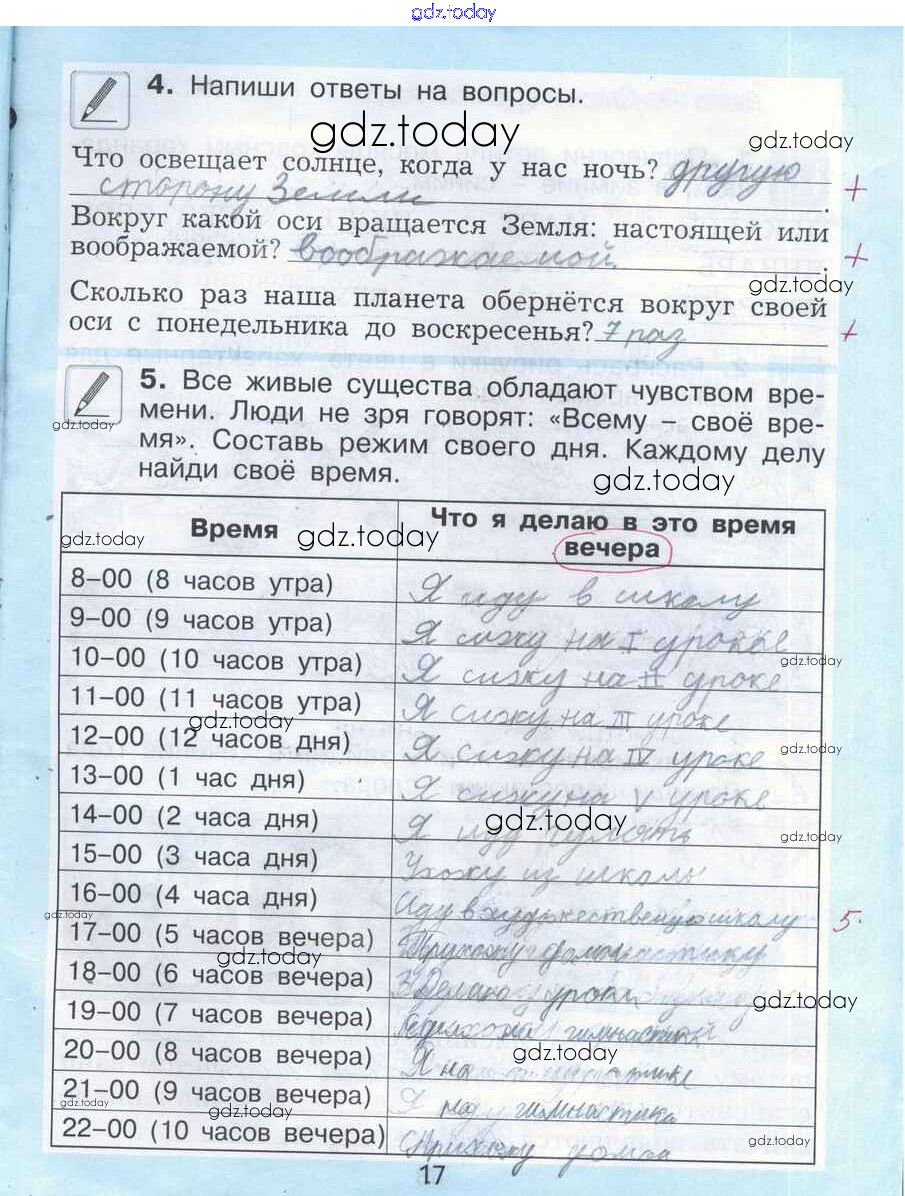 gdz.today
4. Напиши ответы на вопросы.
gdz.today
gdz.today
Что освещает солнце, когда у нас ночь? другую
сторону Земли +
Вокруг какой оси вращается Земля: настоящей или
воображаемой? воображаемой. +
gdz.today
Сколько раз наша планета обернётся вокруг своей
оси с понедельника до воскресенья? 7 раз +
5. Все живые существа обладают чувством вре-
мени. Люди не зря говорят: «Всему – своё вре-
gdz.today
мя». Составь режим своего дня. Каждому делу
найди своё время.
gdz.today
Время Что я делаю в это время
вечера
gdz.today
gdz.today
8–00 (8 часов утра) Я иду в школу
9–00 (9 часов утра) Я сижу на I уроке
gdz.today
10–00 (10 часов утра) Я сижу на II уроке
11–00 (11 часов утра) Я сижу на III уроке
gdz.today
12–00 (12 часов дня) Я сижу на IV уроке
gdz.today
13–00 (1 час дня) Я сижу на V уроке
14–00 (2 часа дня) Я иду гулять
gdz.today
gdz.today
15–00 (3 часа дня) Ухожу из школы
16–00 (4 часа дня) Иду в художественную школу 5.
gdz.today
17–00 (5 часов вечера) Прихожу
gdz.today
18–00 (6 часов вечера) Делаю уроки
gdz.today
19–00 (7 часов вечера)
20–00 (8 часов вечера) Я на
gdz.today
21–00 (9 часов вечера) Я на гимнастике
gdz.today
gdz.today
22–00 (10 часов вечера) Прихожу домой
gdz.today
17